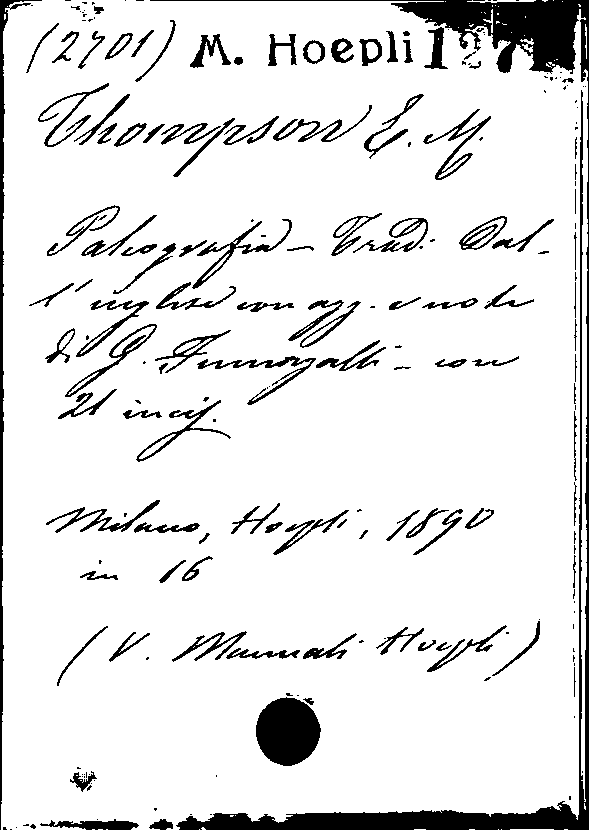 (2701) M. Hoepli 127
Thompson E. M.
Paleografia - Trad. Dal-
l'inglese con agg. e note
di G. Fumagalli - con
21 incis.
Milano, Hoepli, 1890
in 16
(V. Manuali Hoepli)